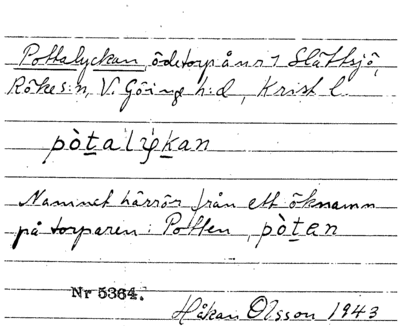 Pottalyckan, ödetorp å nr 1 Slättsjö,
Röke s:n, V. Göinge h:d, Krist l.
pòtalykan
Namnet härrör från ett öknamn
på torparen: Potten, pòten
Nr 5364.
Håkan Olsson 1943